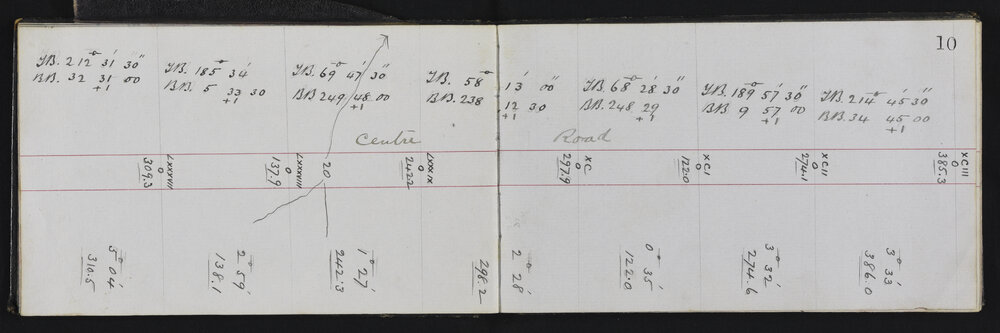 10
F.B. 212° 31' 30"
B.B. 32 31 00
+1
F.B. 185° 34'
B.B. 5 33 30
+1
F.B. 69° 47' 30"
B.B. 249 48 00
+1
F.B. 58° 13' 00
B.B. 238 12 30
+1
F.B. 68° 28' 30"
B.B. 248 29
+1
F.B. 189° 57' 30"
B.B. 9 57 00
+1
F.B. 214° 45' 30"
B.B. 34 45 00
+1
Centre Road
LXXXVII
309.3
LXXXVIII
137.9
20
LXXXIX
242.2
XC
297.9
XCI
122.0
XCII
274.1
XCIII
385.3
5° 04'
310.5
2° 59'
138.1
1° 27'
242.3
2° 28'
298.2
0° 35'
122.0
3° 32'
274.6
3° 33'
386.0